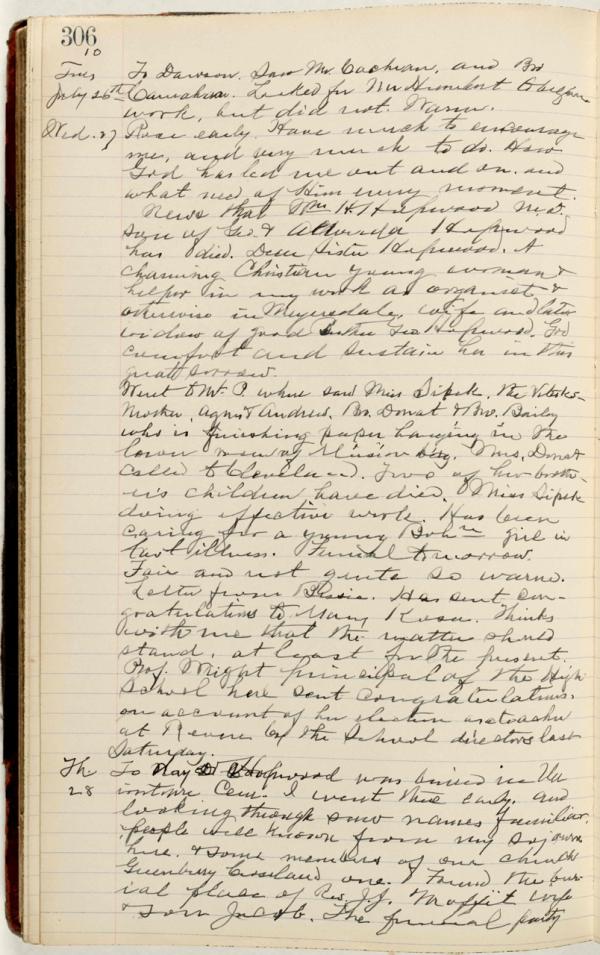 306
10
Tues To Dawson. Saw Mr. Cochran, and Bro
July 26th Carnahan. Looked for Mr Humbert to begin
work, but did not. Warm.
Wed. 27 Rose early. Have much to encourage
me, and very much to do. How
God has led me out and on. and
what need of Him every moment.
News that Wm H. Hopwood M.D.
son of Geo. & Hopwood
has died. Dear Sister Hopwood. A
charming Christian young woman &
helper in my work as organist &
otherwise in Meyersdale, wife and later
widow of good Brother Geo Hopwood. God
comfort and sustain her in this
great sorrow.
Went to Mt. P. where saw Miss Sipek, the
Agnes & Andrew. Bro. Donat & Bro. Baily
who is finishing paper hanging in the
lower room of Mission bldg. Mrs. Donat
called to Cleveland. Two of her broth-
er's children have died. Miss Sipek
doing effective work. Has been
caring for a young Bohn girl in
last illness. Funeral tomorrow.
Fair and not quite so warm.
Letter from Has sent con-
gratulations to Mary Rosa. Thinks
with me that the matter should
stand, at least for the present.
Prof. Wright principal of the High
School here sent congratulations.
on account of her election as teacher
at Revere by the School directors last
Saturday.
Th To Hopwood was buried in Un
28 iontown Cem. I went there early, and
looking through saw names familiar,
people well known from my sojourn
here. & some members of our church
Greenberry Crossland one. I found the bur-
ial place of Rev. J.J. Moffitt wife
& son Jacob. The funeral party